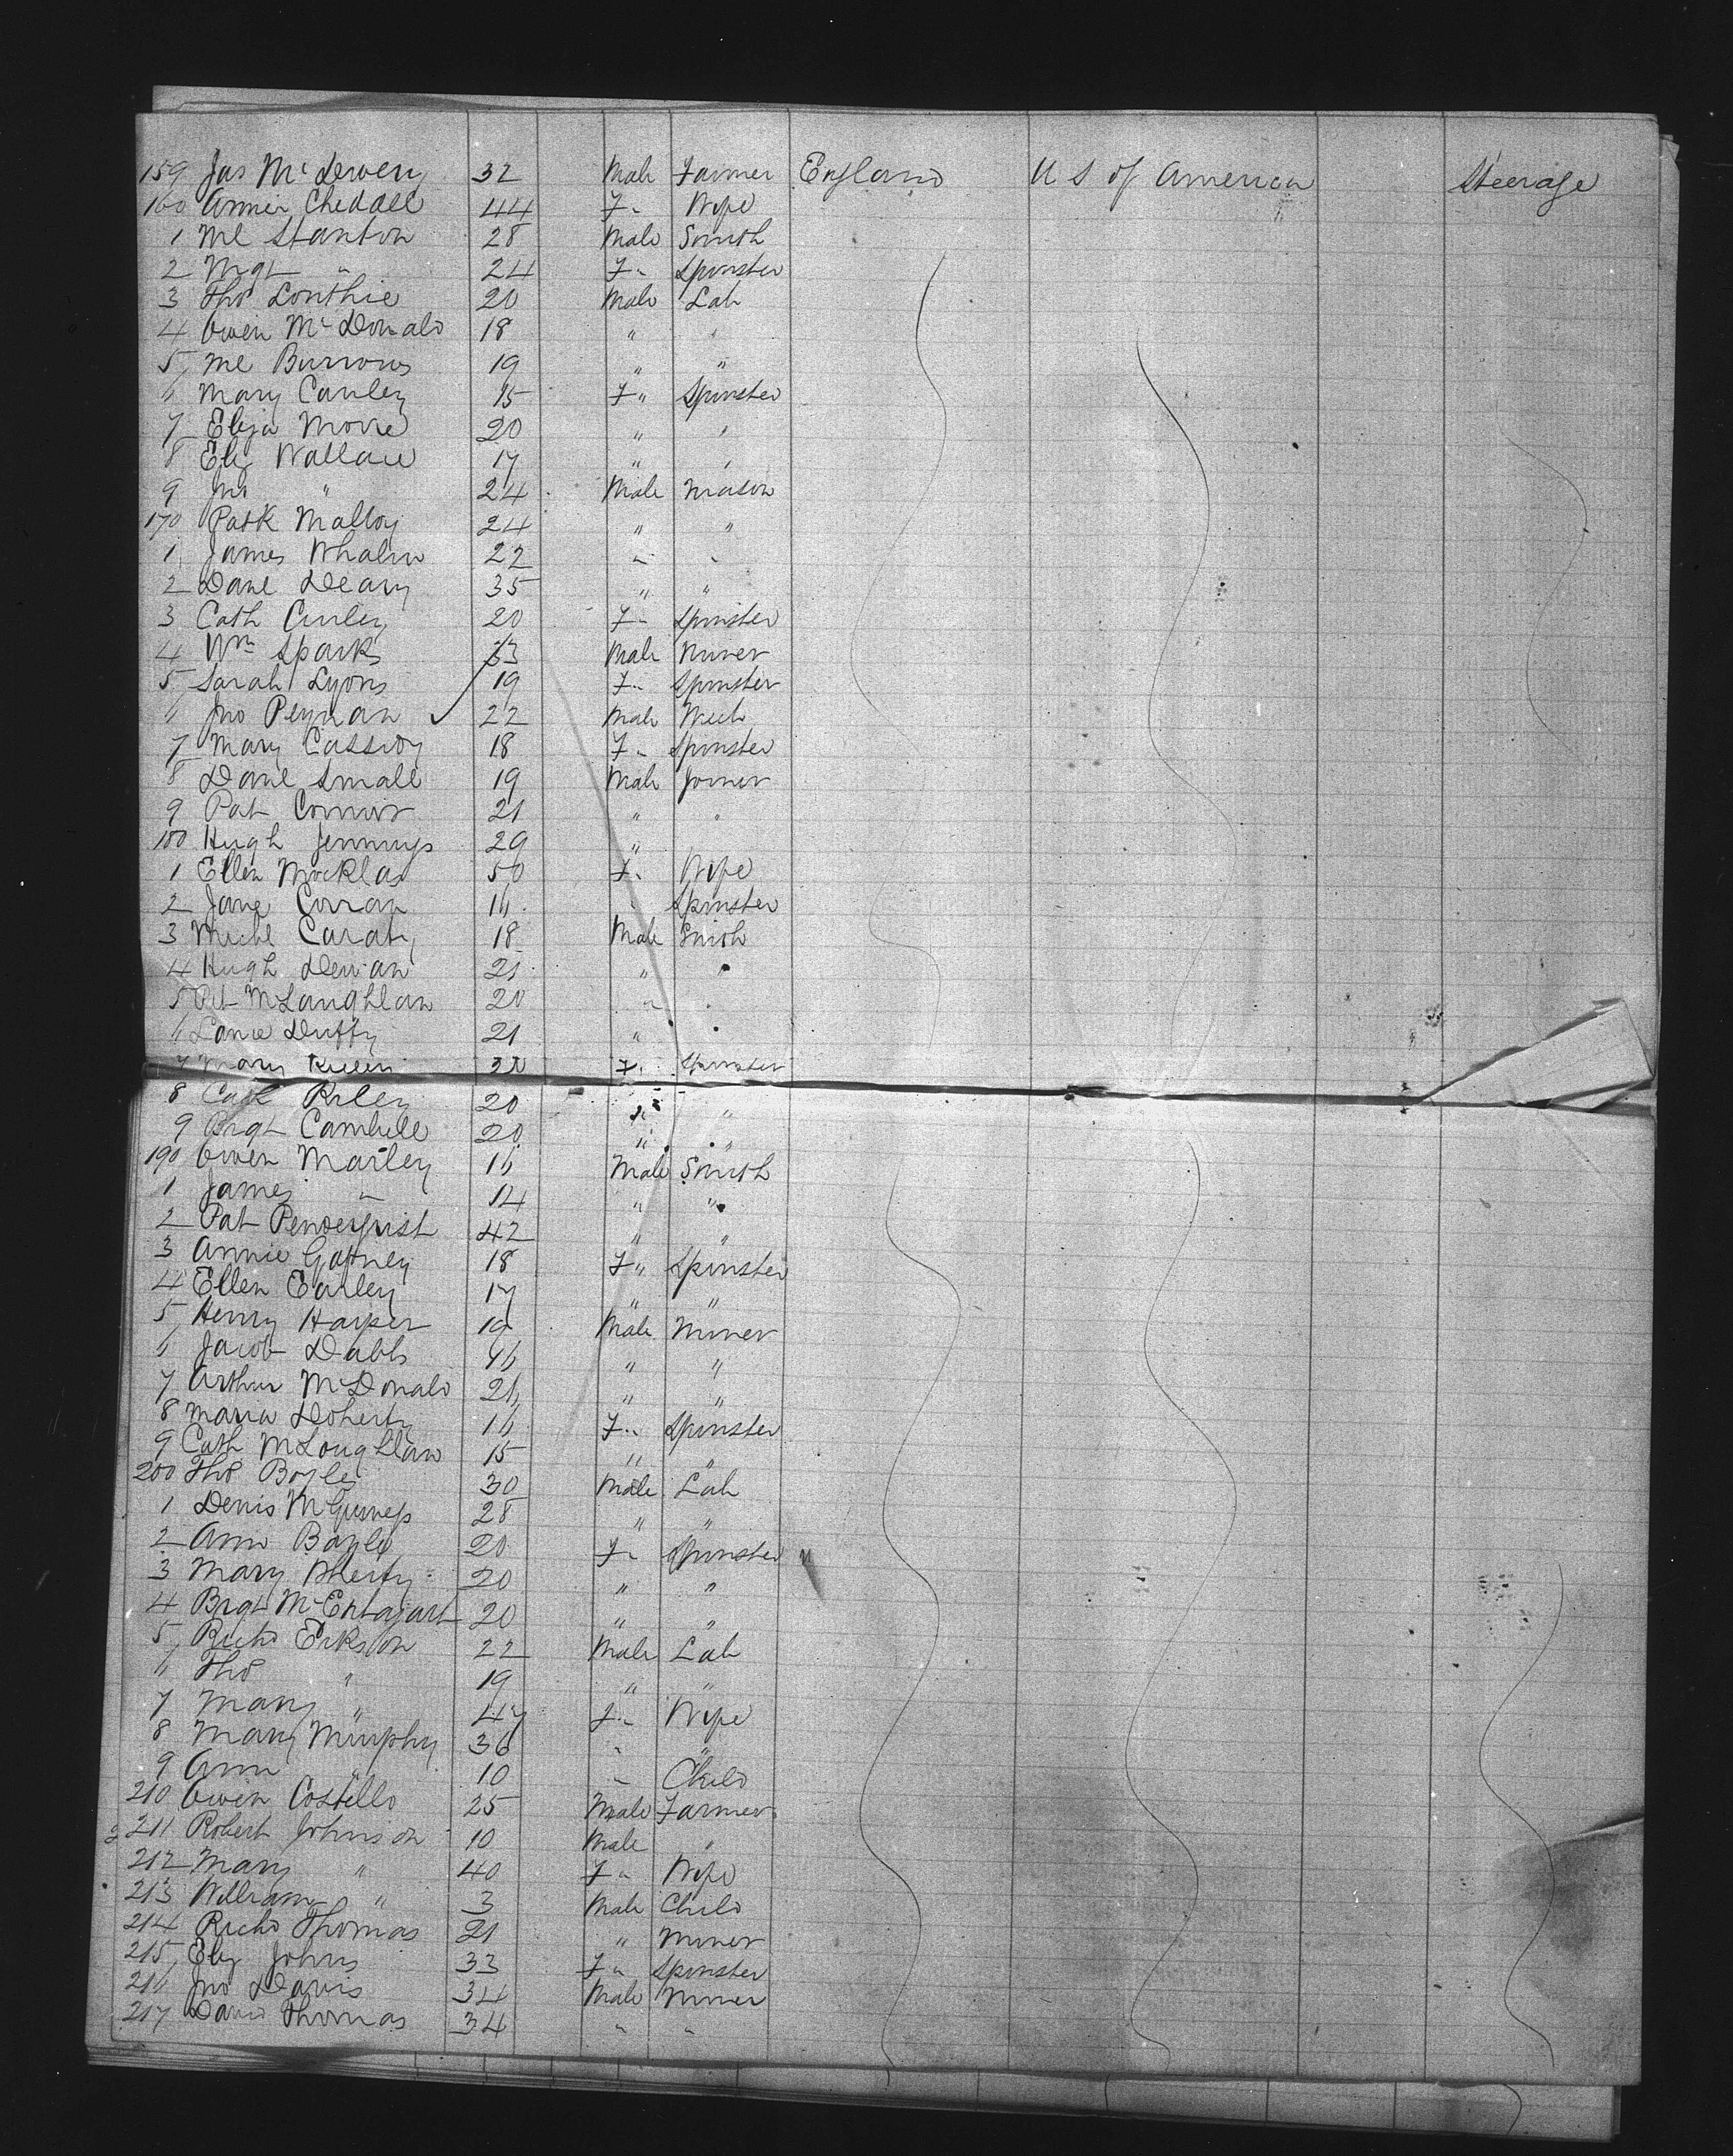 159 Jas McDevery 32 Male Farmer England U S of America Steerage
160 Annie Cheddle 44 F " Wife
1 Ml Stanton 28 Male Smith
2 Mgt " 24 F " Spinster
3 Thos Louthie 20 Male Lab
4 Owen McDonald 18 " "
5 Ml Burrows 19 " "
6 Mary Cauley 15 F " Spinster
7 Eliza Moore 20 " "
8 Eliz Wallace 17 " "
9 Jno " 24 Male Mason
170 Patk Malloy 24 " "
1 James Whalen 22 " "
2 Danl Deary 35 " "
3 Cath Curley 20 F " Spinster
4 Wm Sparks 33 Male Miner
5 Sarah Lyons 19 F " Spinster
6 Jno 22 Male Mech
7 Mary Cassidy 18 F " Spinster
8 Danl Small 19 Male Joiner
9 Pat Connor 21 " "
180 Hugh Jennings 29 "
1 Ellen 50 F " Wife
2 Jane Curran 16 " Spinster
3 Michl 18 Male Smith
4 Hugh 21 " "
5 Pat McLaughlan 20 " "
6 Duffy 21 " "
7 Mary F " Spinster
8 Cath Riley 20 " "
9 Brgt Cambell 20 " "
190 Owen Marley 16 Male Smith
1 James " 14 " "
2 Pat Pendergrist 42 " "
3 Annie Gaffney 18 F " Spinster
4 Ellen Earley 17 " "
5 Henry Harper 19 Male Miner
6 Jacob Dabbs 46 " "
7 Arthur McDonald 26 " "
8 Maria Doherty 16 F " Spinster
9 Cath McLoughlan 15 " "
200 Thos Boyle 30 Male Lab
1 Denis McGuiness 28 " "
2 Ann Boyle 20 F " Spinster "
3 Mary 20 " "
4 Brgt McEntagart 20 " "
5 Richd Erikson 22 Male Lab
6 Thos " 19 " "
7 Mary " 47 F " Wife
8 Mary Murphy 36 " "
9 Ann " 10 " Child
210 Owen Costello 25 Male Farmer
211 Robert Johnson 10 Male "
212 Mary " 40 F " Wife
213 William " 3 Male Child
214 Richd Thomas 21 " Miner
215 Eliz Johns 33 F " Spinster
216 Jno Davis 34 Male Miner
217 David Thomas 34 " "